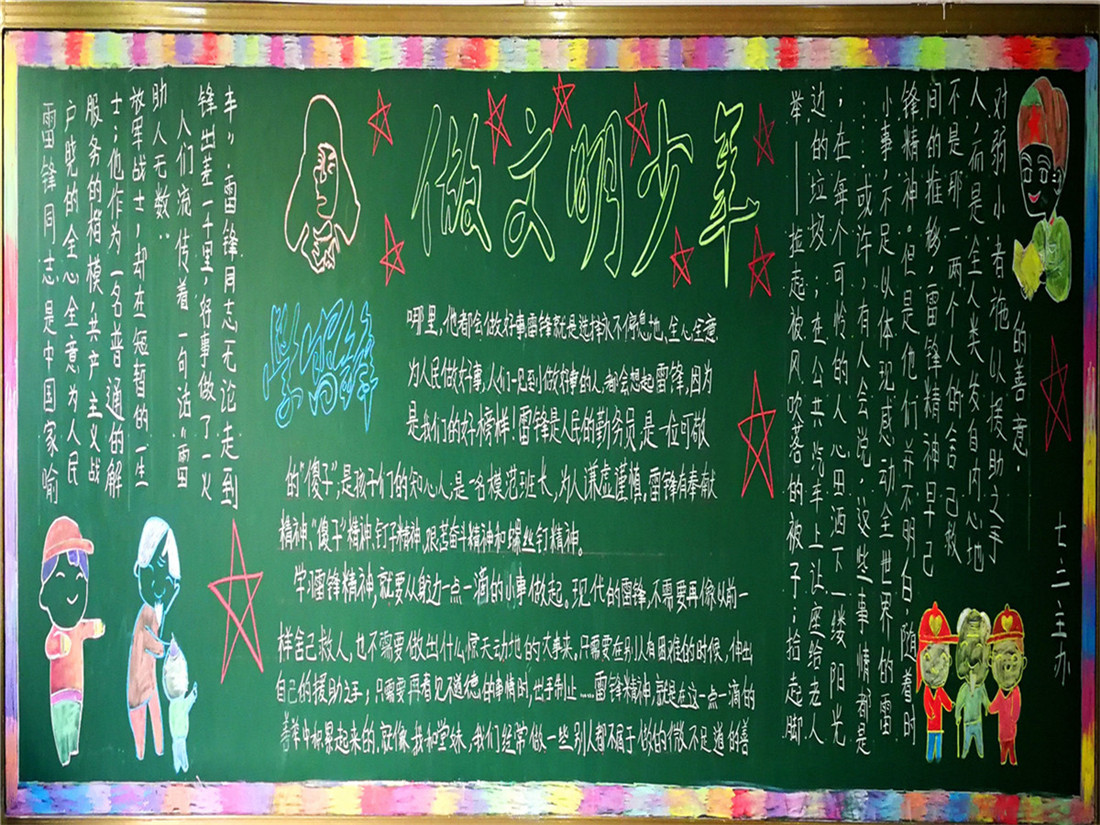 做文明少年
学雷锋
雷锋同志是中国家喻
户晓的全心全意为人民
服务的楷模,共产主义战
士;他作为一名普通的解
放军战士,却在短暂的一生
助人无数..
人们流传着一句话“雷
锋出差一千里,好事做了一火
车”.雷锋同志无论走到
哪里,他都会做好事雷锋就是选择永不停息地,全心全意
为人民做好事,人们一见到做好事的人,都会想起雷锋,因为
是我们的好榜样!雷锋是人民的勤务员,是一位可敬
的“傻子”,是孩子们的知心人,是一名模范班长,为人谦虚谨慎,雷锋有奉献
精神、“傻子”精神、钉子精神、艰苦奋斗精神和螺丝钉精神。
学习雷锋精神,就要从身边一点一滴的小事做起。现代的雷锋,不需要再像以前一
样舍己救人,也不需要做出什么惊天动地的大事来。只需要在别人有困难的时候,伸出
自己的援助之手;只需要再看见不道德的事情时,出手制止……雷锋精神,就是在这一点一滴的
善举中积累起来的,就像我和堂妹,我们经常做一些别人都不屑于做的微不足道的善
举——捡起被风吹落的被子;拾起脚
边的垃圾;在公共汽车上让座给老人
;在每个可怜的人心田洒下一缕阳光
……或许,有人会说,这些事情都是
小事,不足以体现感动全世界的雷
锋精神.但是他们并不明白.随着时
间的推移,雷锋精神早已
不是那一两个人的舍己救
人,而是全人类发自内心地
对弱小者施以援助之手
的善意.
七二主办